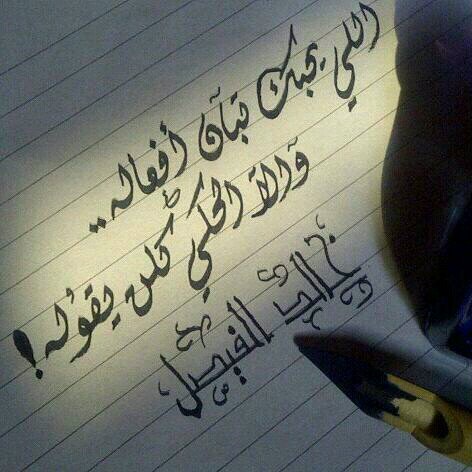 اللي يحبك تبآن أفعاله..
وَآلا الحكي كُلن يقوُله!
خالد الفيصل